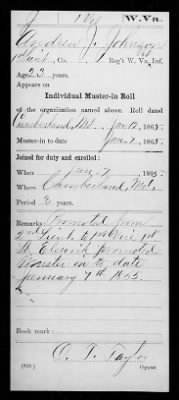 J 1 Vet W.Va.
Andrew J. Johnson
1 Lieut, Co. , 1 Reg't W. Va. Inf.
Age 23 years.
Appears on
Individual Muster-in Roll
of the organization named above. Roll dated
Cumberland, Md., Jan. 12, 1865.
Muster-in to date Jan. 7, 1865.
Joined for duty and enrolled:
When Jan. 7, 1865.
Where Cumberland, Md.
Period 3 years.
Remarks: Promoted from
2nd Lieut. to 1st
promoted
in to date
January 7th 1865.
Book mark:
O. T. Taylor
Copyist.